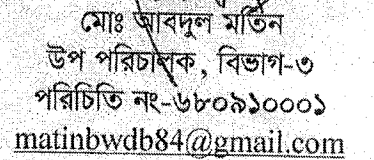 মোঃ আবদুল মতিন
উপ পরিচালক, বিভাগ-৩
পরিচিতি নং-৬৮০৯১০০০১
matinbwdb84@gmail.com